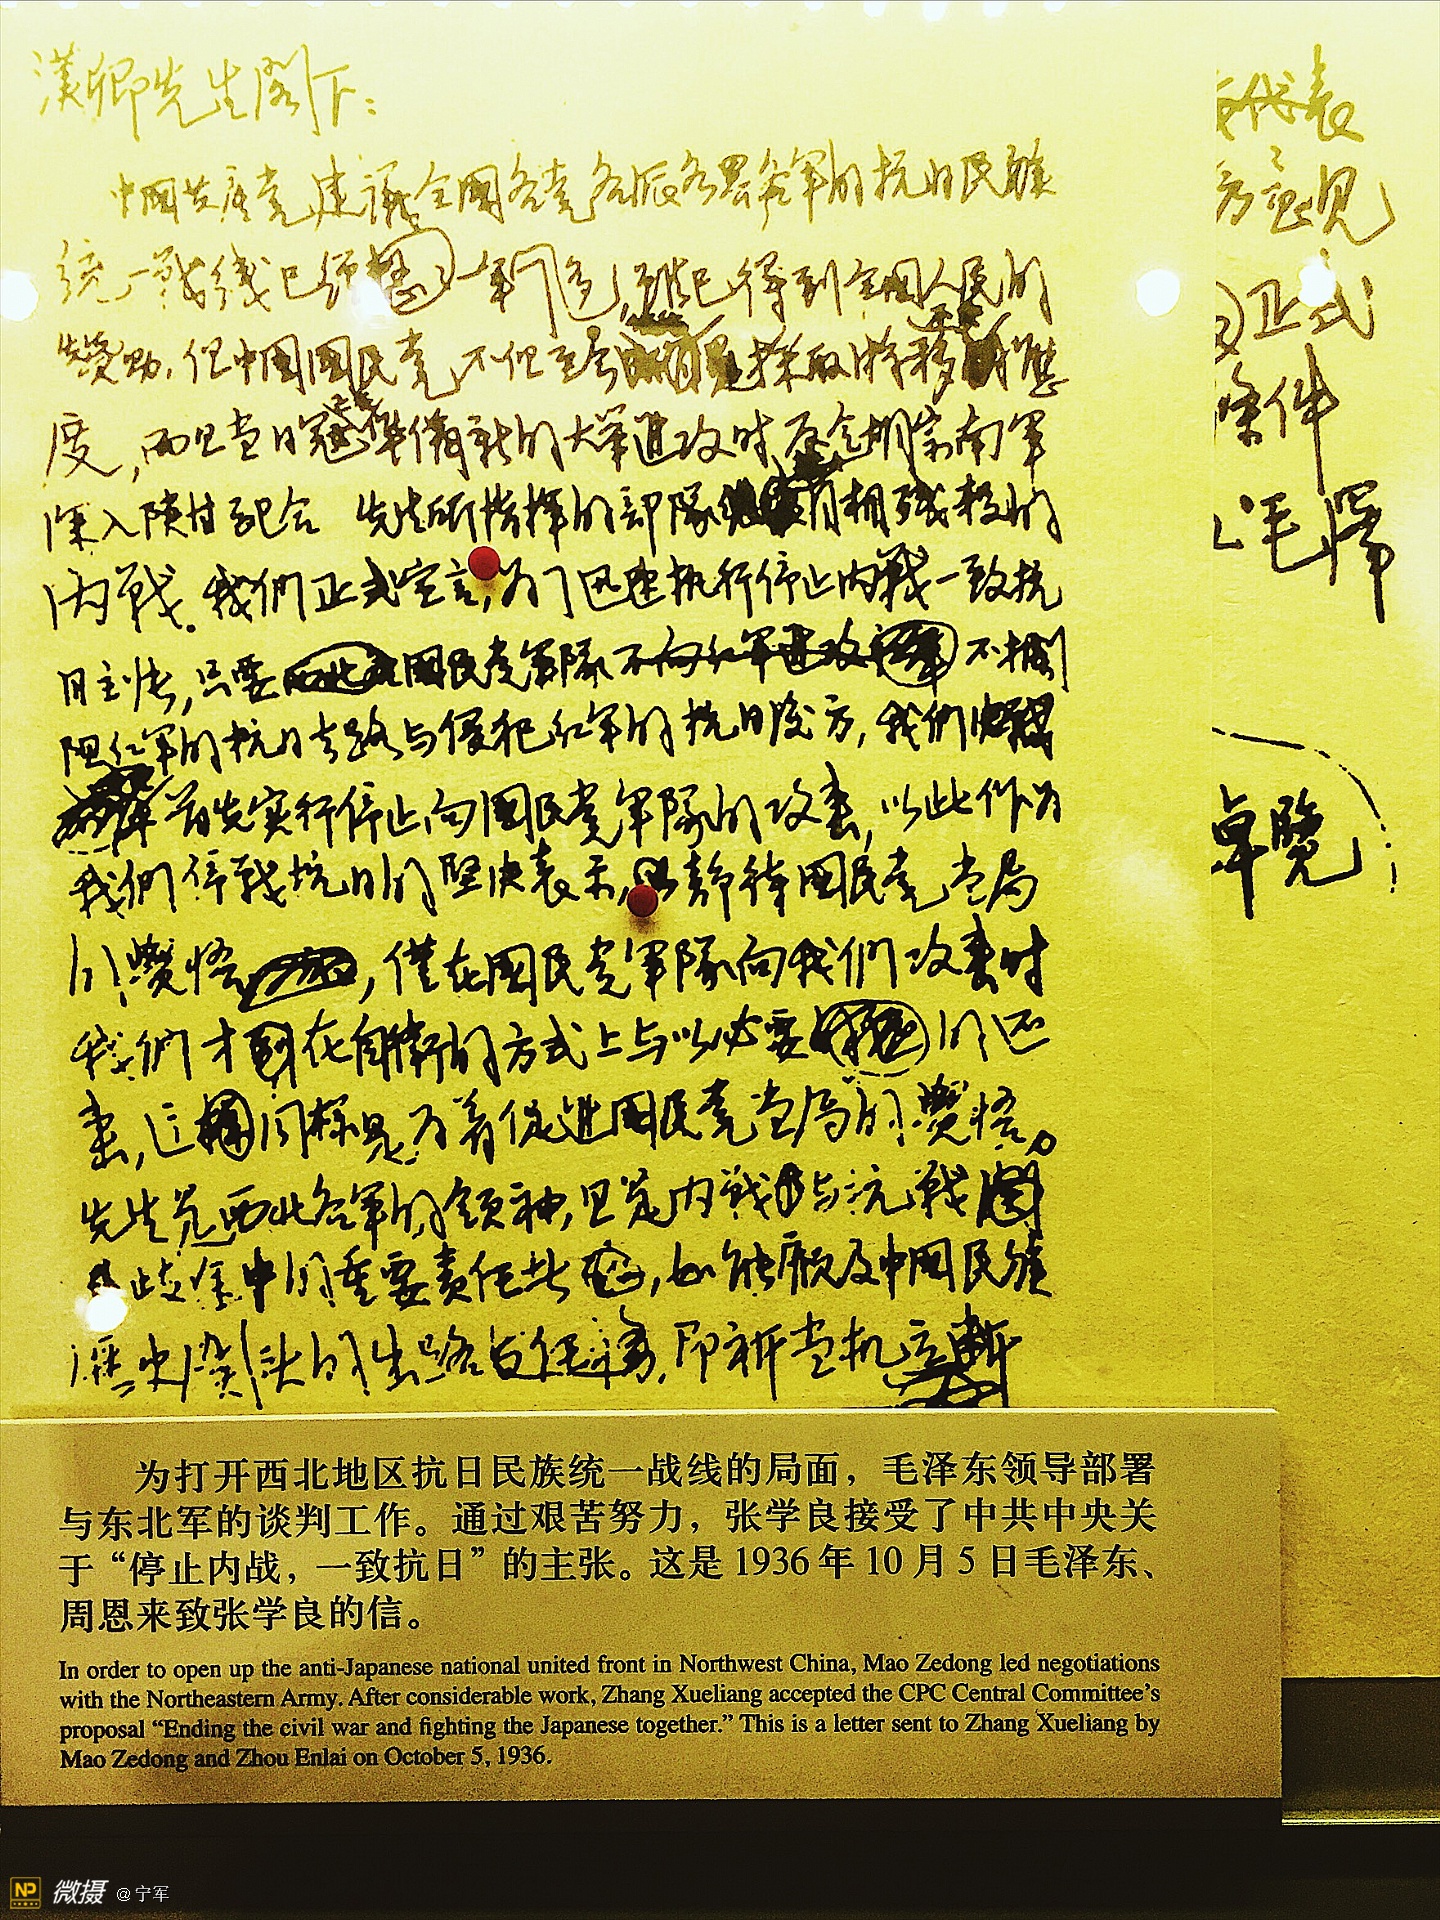 漢卿先生閣下：
中國共產党建議全國各党各派各界各軍的抗日民族
統一戰线已经一年了，虽然已得到全國人民的
赞助，但中國國民党不但至今採取游移態
度，而且当日寇準備新的大舉進攻时反令胡宗南軍
深入陕甘配合 先生所指揮的部隊自相殘殺的
内戰。我們正式宣言，为了迅速执行停止内戰一致抗
日主张，只要國民党軍隊不向紅軍進攻不攔
阻紅軍的抗日去路与侵犯紅軍的抗日後方，我們
首先實行停止向國民党軍隊的攻击，以此作为
我們停戰抗日的堅決表示，静待國民党当局
的覺悟，僅在國民党軍隊向我們攻击时
我們才在自衛的方式上与以必要的还
击，这同样是为着促進國民党当局的覺悟。
先生是西北各軍的領袖，且是内戰与抗戰
歧途中的重要責任者，如能顾及中國民族
歷史関头的出路与任務，即祈当机立断
代表
方意见
的正式
條件
毛澤
卓覽
为打开西北地区抗日民族统一战线的局面，毛泽东领导部署
与东北军的谈判工作。通过艰苦努力，张学良接受了中共中央关
于“停止内战，一致抗日”的主张。这是 1936 年 10 月 5 日毛泽东、
周恩来致张学良的信。
In order to open up the anti-Japanese national united front in Northwest China, Mao Zedong led negotiations
with the Northeastern Army. After considerable work, Zhang Xueliang accepted the CPC Central Committee’s
proposal “Ending the civil war and fighting the Japanese together.” This is a letter sent to Zhang Xueliang by
Mao Zedong and Zhou Enlai on October 5, 1936.
NP 微摄 @宁军